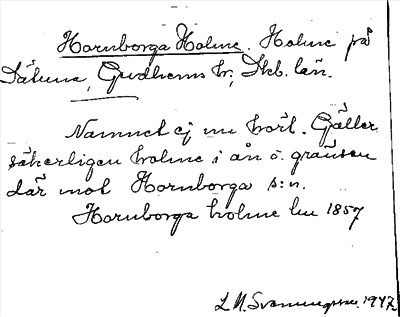 Hornborga Holme. Holme på
Sätuna, Gudhems hr, Skb. län.
Namnet ej nu hört. Gäller
säkerligen holme i ån o. gränsen
där mot Hornborga s:n.
Hornborga holme lm 1857
1947